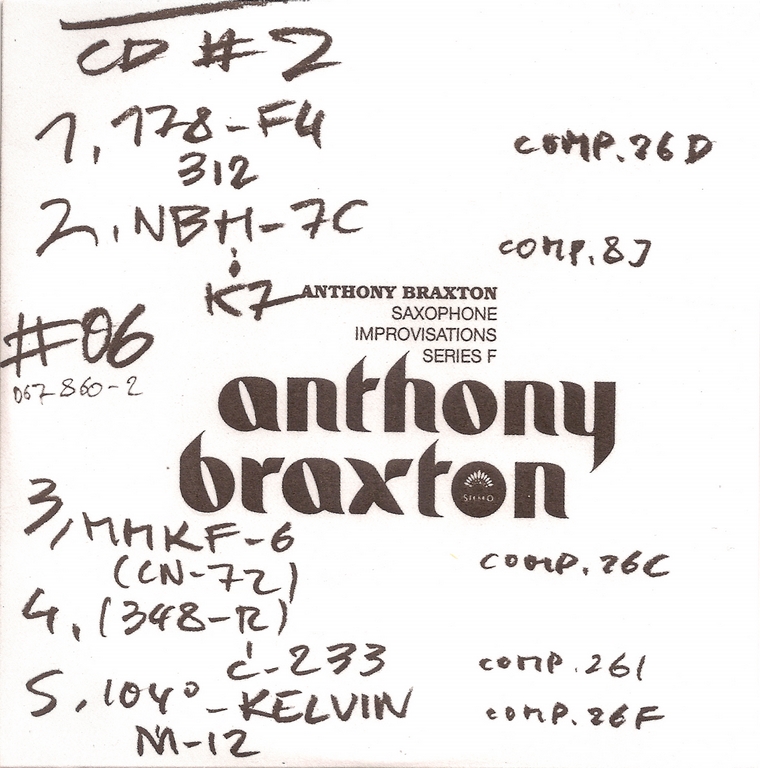 CD #2
1, 178-F4 COMP. 26 D
312
2, NBH-7C COMP. 8J
K7
ANTHONY BRAXTON
SAXOPHONE
IMPROVISATIONS
SERIES F
#06
067-860-2
anthony
braxton
3, MMKF-6 COMP. 26C
(CN-72)
4, (348-R) 
C-233 COMP. 26I
5. 104°-KELVIN COMP. 26F
M-12